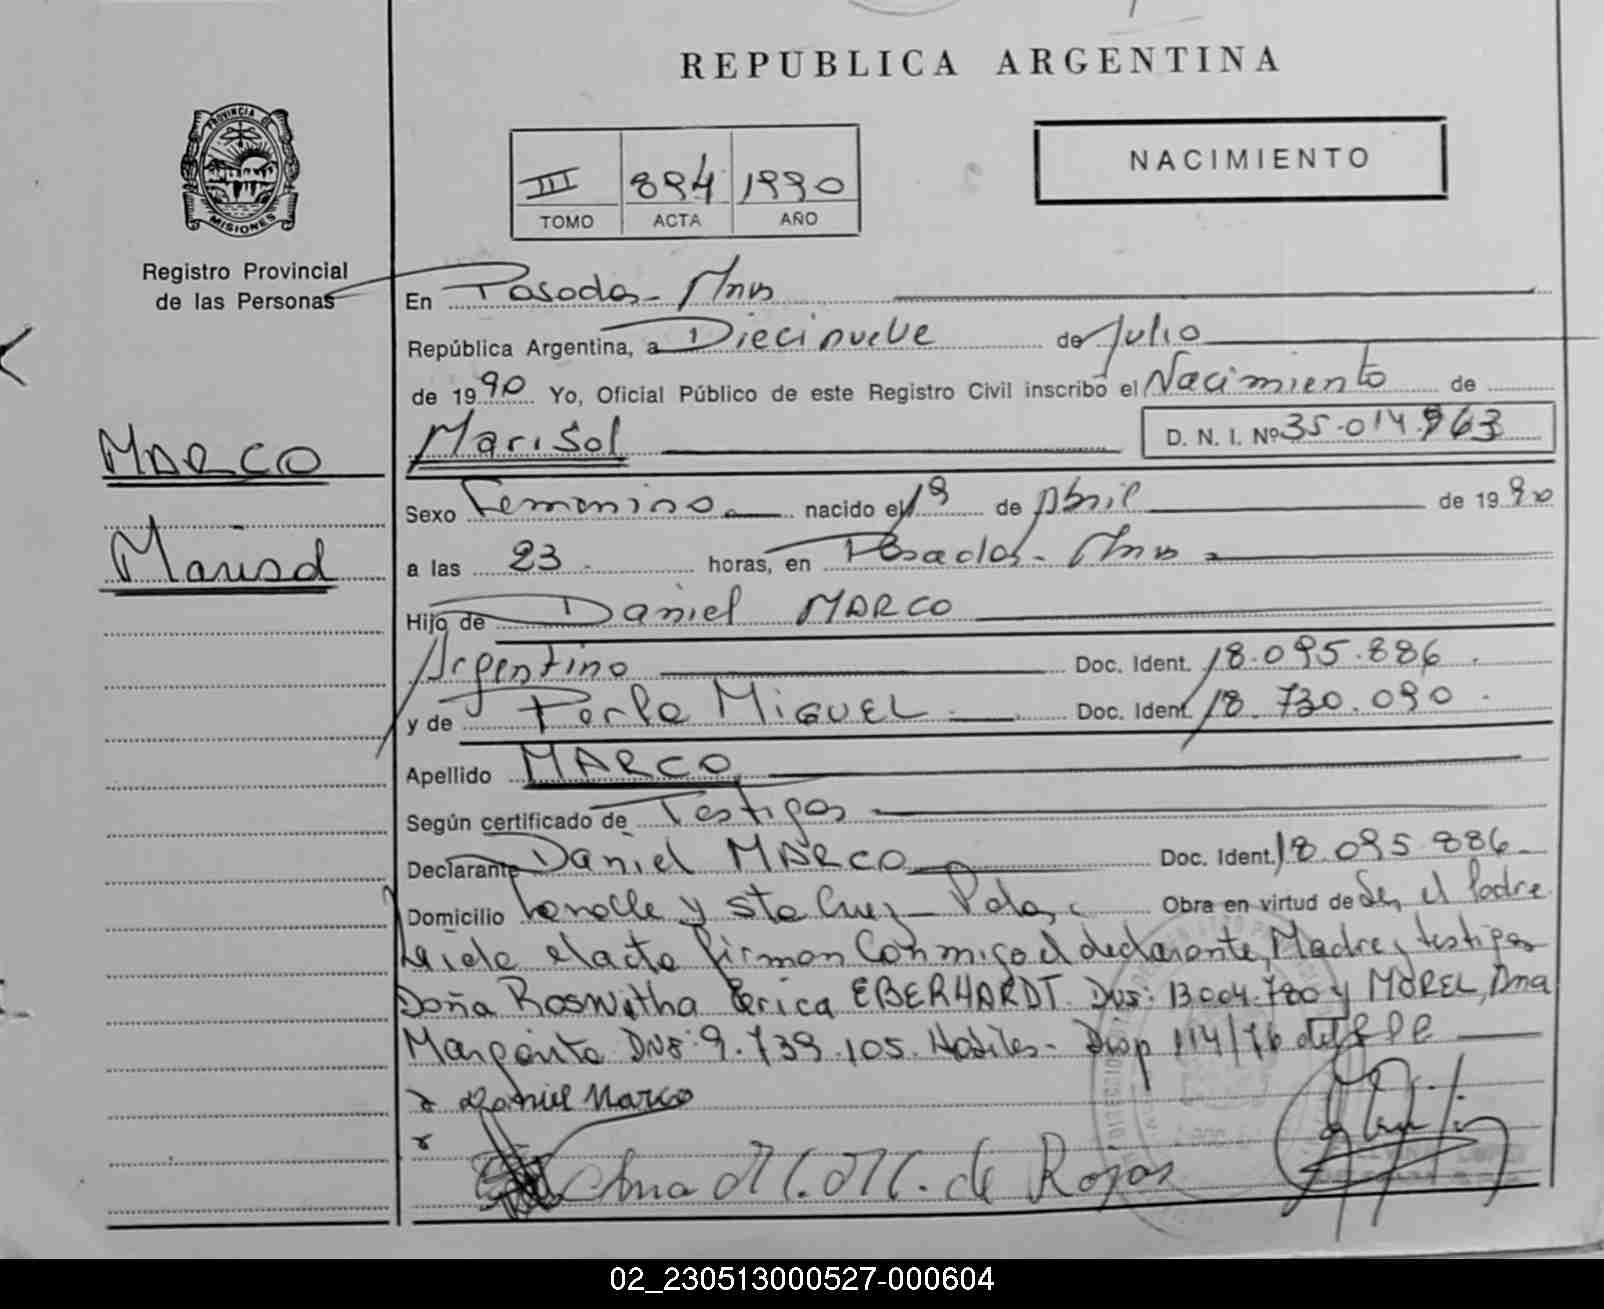 REPUBLICA ARGENTINA
PROVINCIA DE
MISIONES
NACIMIENTO
III 894 1990
TOMO ACTA AÑO
Registro Provincial
de las Personas
En Posadas - Mnes
República Argentina, a Diecinueve de Julio
de 1990 Yo, Oficial Público de este Registro Civil inscribo el Nacimiento de
MARCO
Marisol D. N. I. Nº 35.014.963
Sexo Femenino nacido el 19 de Abril de 1990
Marisol
a las 23 horas, en Posadas - Mnes
Hijo de Daniel MARCO
Argentino Doc. Ident. 18.095.886
y de Perla MIGUEL Doc. Ident. 18.730.090
Apellido MARCO
Según certificado de Testigos
Declarante Daniel MARCO Doc. Ident. 18.095.886
Domicilio y Sta Cruz - Pdas, Obra en virtud de Ser el Padre
Leída el acta firman conmigo el declarante, Madre y testigos
Doña Roswitha Erica EBERHARDT DNI: 13.004.780 y MOREL, Ana
Margarita DNI: 9.739.105. Hábiles - Disp 114/76 del RPP
x Daniel Marco
x
Ana M. de Rojas
02_230513000527-000604